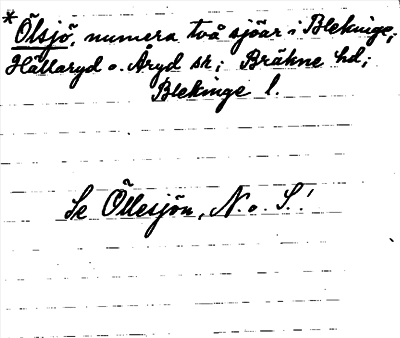 *Ölsjö, numera två sjöar i Blekinge;
Hällaryd o. Åryd sk; Bräkne hd;
Blekinge l.
Se Öllesjön, N. o. S.!